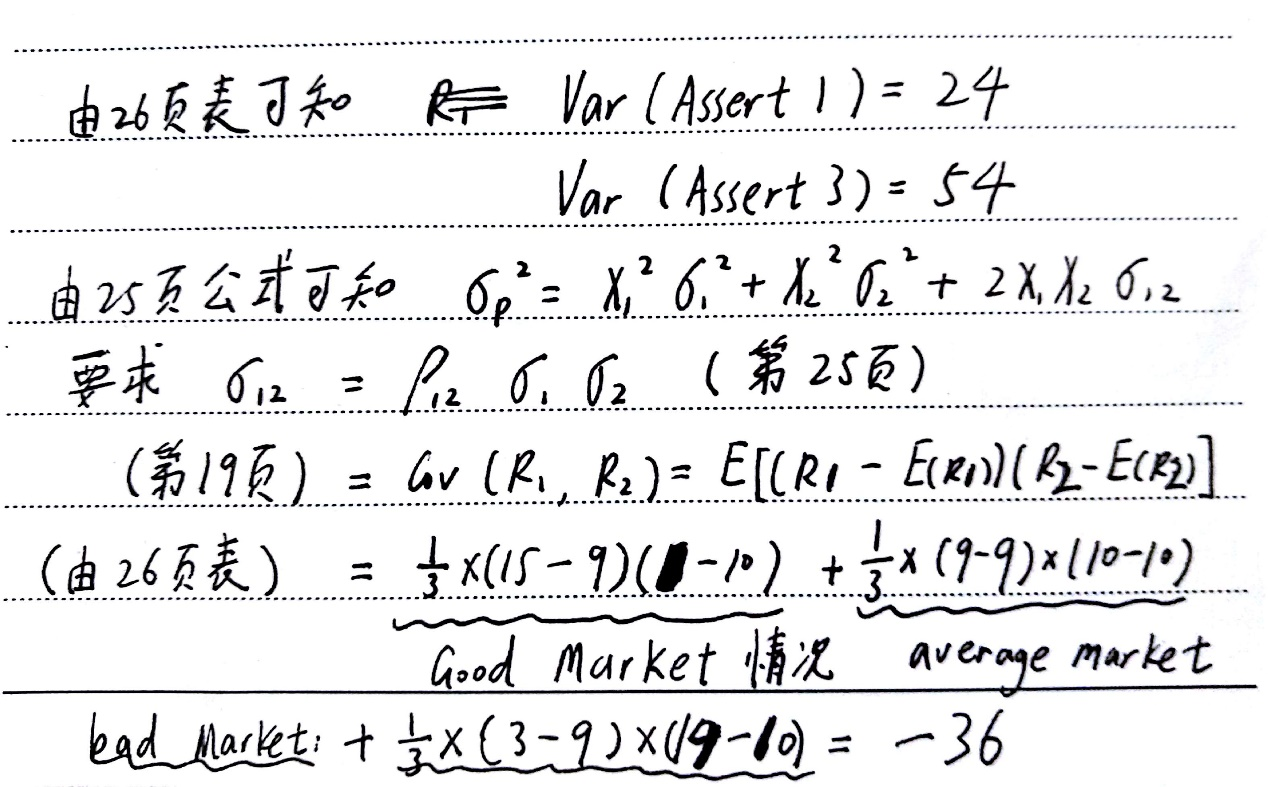 由26页表可知 Var (Assert 1) = 24
Var (Assert 3) = 54
由25页公式可知 σp² = X₁² σ₁² + X₂² σ₂² + 2X₁X₂ σ₁₂
要求 σ₁₂ = ρ₁₂ σ₁ σ₂ (第25页)
(第19页) = Cov (R₁, R₂) = E[(R1 - E(R1))(R2-E(R2)]
(由26页表) = 1/3 ×(15-9)( -10) + 1/3 × (9-9)×(10-10)
Good Market 情况 average market
bad Market: + 1/3 × (3-9) ×(19-10) = -36